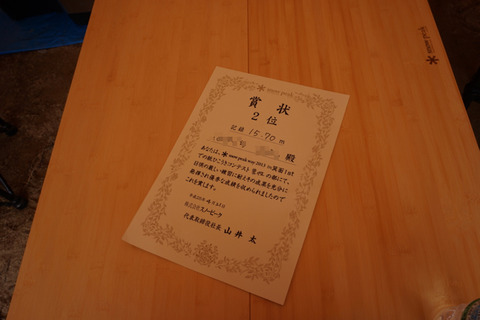 snow peak
賞状
2位
記録 15.70 m
殿
あなたは、snow peak way 2013 in 箕面 1st
での紙ひこうきコンテスト
日頃の厳しい練習に耐えその成果を充分に
発揮され優秀な成績を収められましたので
これを賞します。
株式会社スノーピーク
代表取締役社長 山井 太
snow peak